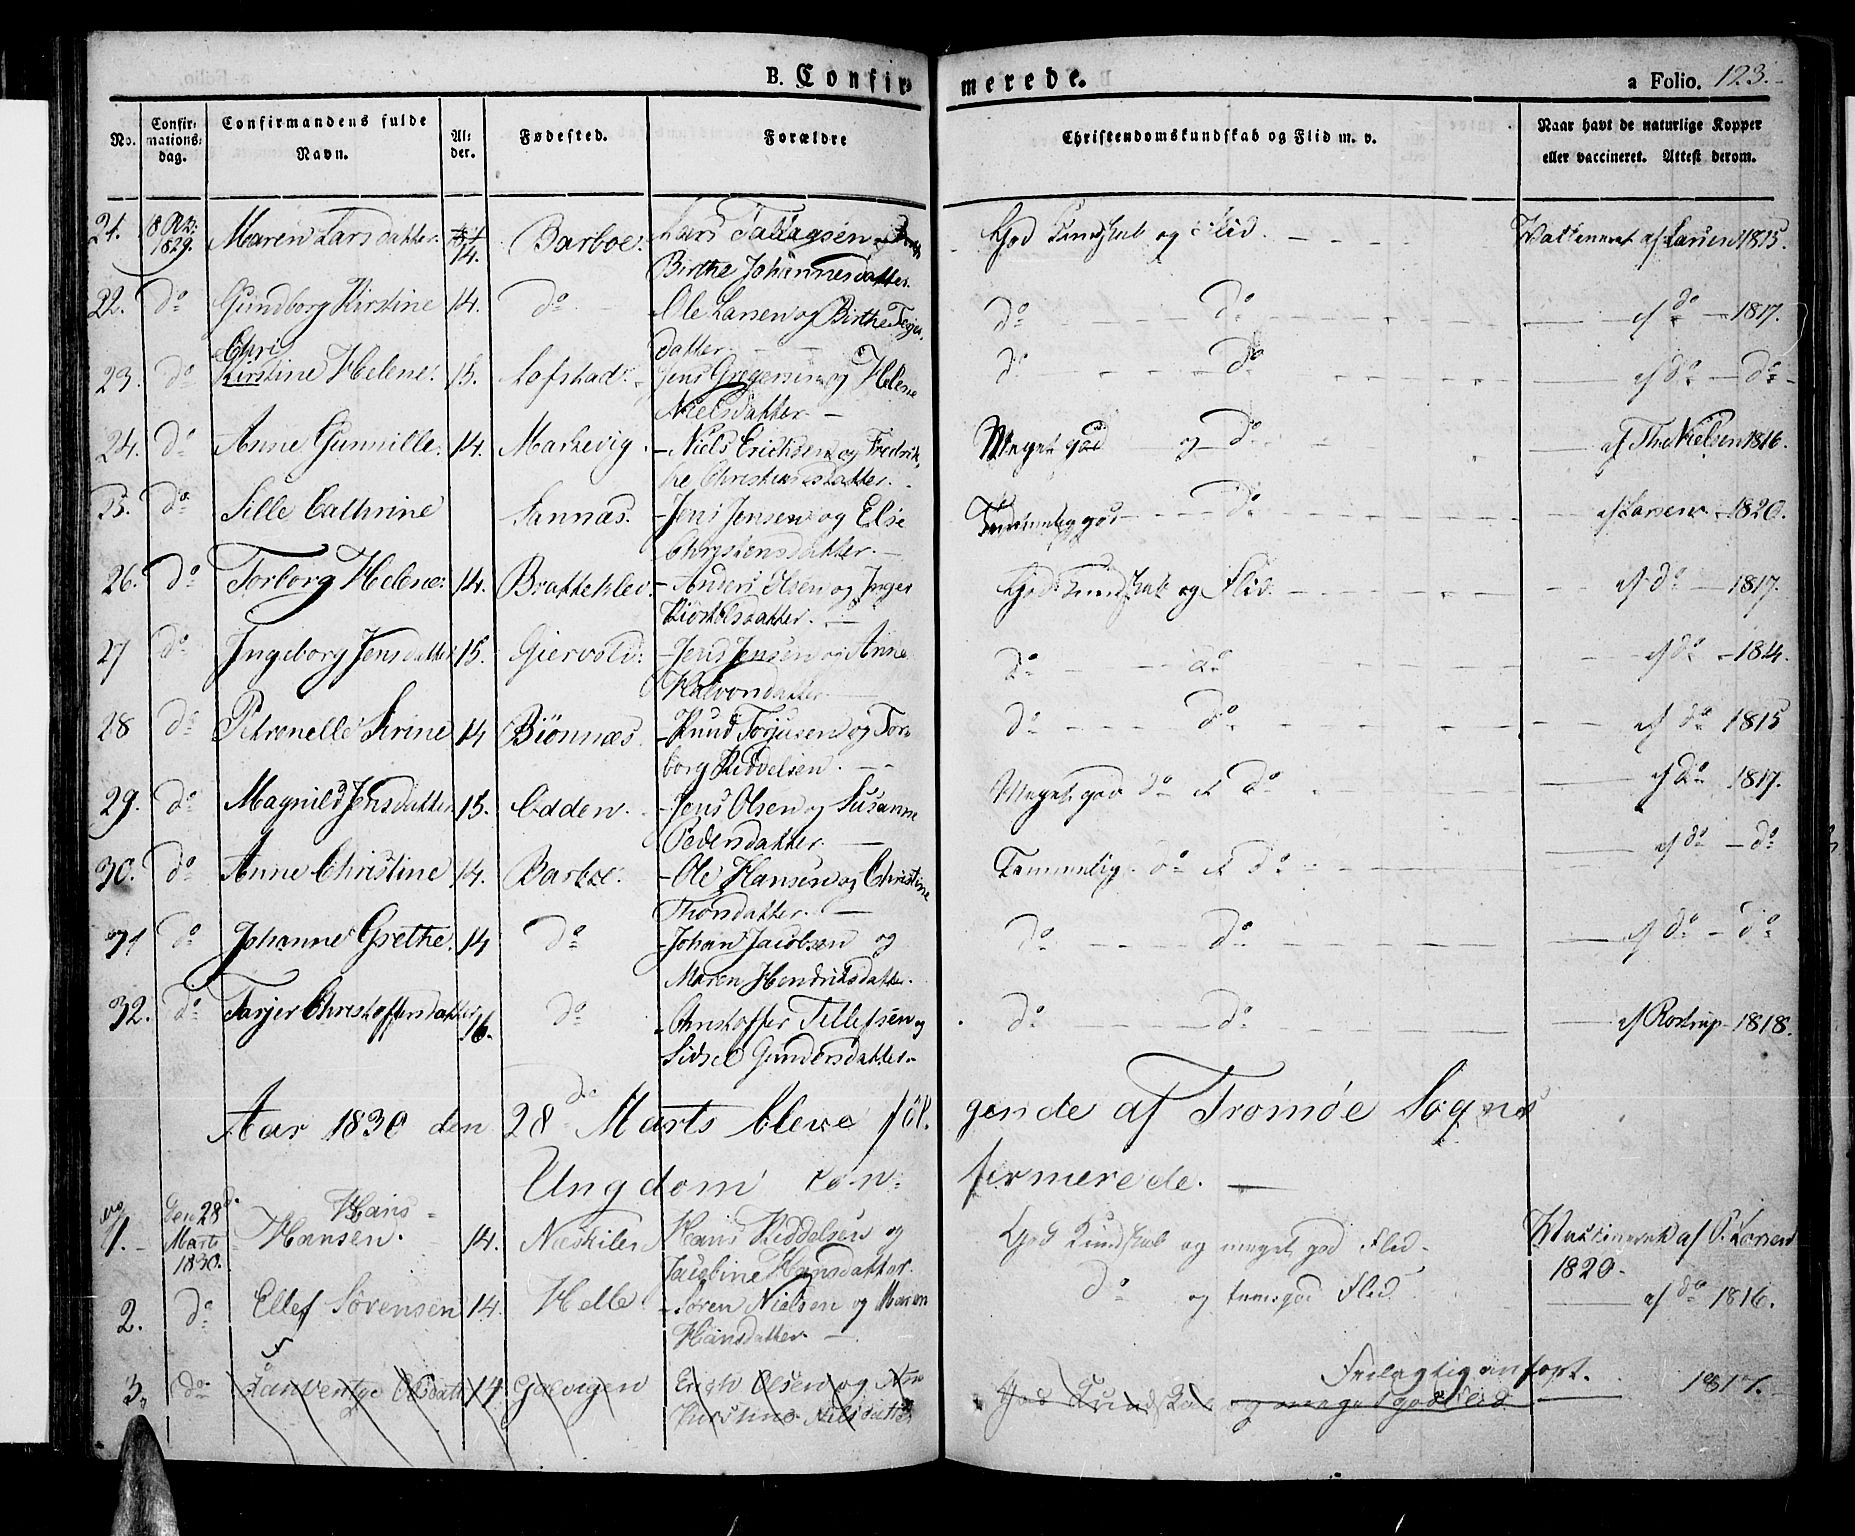 B. Confirmerede. a Folio. 123.
No. Confirmationsdag. Confirmandens fulde Navn. Alder. Fødested. Forældre Christendomskundskab og Flid m. v. Naar havt de naturlige Kopper eller vaccineret. Attest derom.
21. 18 1829. Maren Larsdatter. 14. Barboe. Lars God Kundskab og Flid. Vaccineret af Larsen 1815
Birthe Johannesdatter.
22. do Gundborg Kirstine 14. do Ole Larsen og Birthe do do af do 1817.
datter.
Chri
23. do Kirstine Helene. 15. Lofstad. Jens Gregersen og Helene do do af do do
Nielsdatter
24. do Anne Gunnille. 14. Markevig. Niels Erichsen og Fredrik- Meget god og do af Ths Nielsen 1816.
ke Christensdatter.
25. do Sille Cathrine Sannæs. Jens Jensen og Else Temmelig god do af Larsen 1820.
Christensdatter.
26. do Torborg Helene. 14. Brattekley. Anders Olsen og Inger God Kundskab og Flid. af do 1817.
27 do Ingeborg Jensdatter 15. Giervold. Jens Jensen og Anne do do af do 1814.
Halvorsdatter
28 do Petronelle Sirine 14 Biønnæs. Knud Torjusen og Tor- do do af do 1815
borg
29. do Magnild Jensdatter 15. Odden. Jens Olsen og Susanne Meget god do et do af do 1817.
Pedersdatter.
30. do Anne Christine 14. Barboe. Ole Hansen og Christine Temmelig do et do af do do
Thorsdatter.
31 do Johanne Grethe. 14 do Johan Jacobsen og do do af do do
Maren Hendriksdatter.
32. do Tarjer Christoffersdatter 16. do Christoffer Tellefsen og do do af Rostrup 1818.
Sidsel Gundersdatter
Aar 1830 den 28de Marts bleve følgende af Tromøe Sogns
Ungdom confirmerede.
No 1. Den 28de Marts 1830. Hans Hansen. 14. Næskilen Hans Kiddelsen og God Kundskab og meget god Flid. Vaccineret af P. Larsen
Jacobine Hansdatter. 1820
2. do Ellef Sørensen 14. Helle. Søren Nielsen og Maren do og god Flid af do 1816.
Hansdatter.
Feilagtig anført.
3. do Olsdatter 14 Erich Olsen og Ane God Kundskab og meget god Flid 1817.
Kirstine Nilsdatter